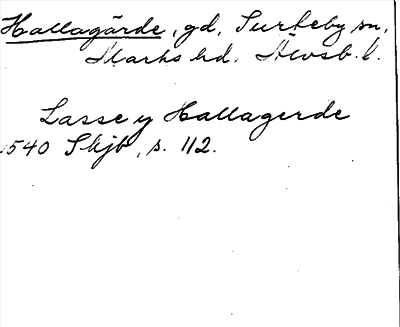 Hallagärde, gd, Surteby sn,
Marks hd. Älvsb. l.
Lasse y Hallagerde
1540 Skjb, s. 112.